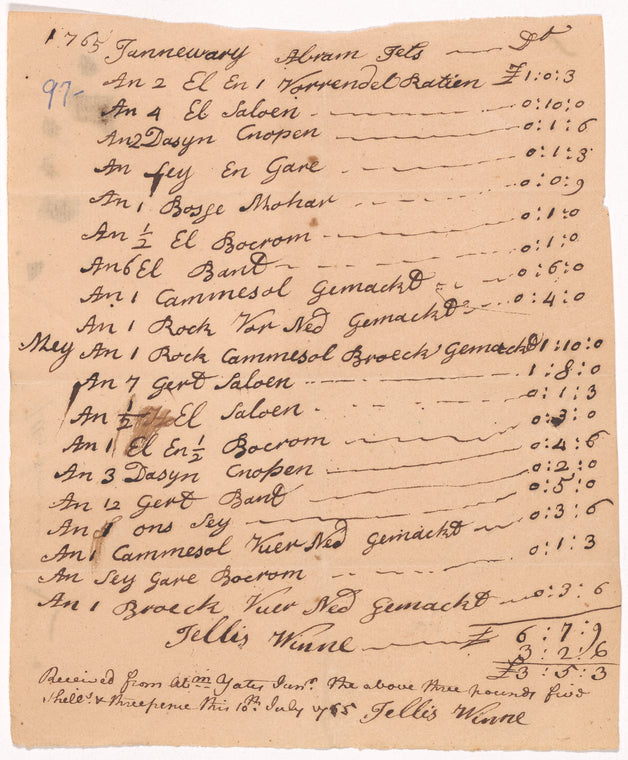 1765 Jannewary Abram Jets — Dr
97-
An 2 El En 1 Vorrendel Ratien £1:0:3
An 4 El Saloen - 0:10:0
An 2 Dasyn Cnopen 0:1:6
An Sey En Gare 0:1:3
An 1 Bosge Mohar 0:0:9
An ½ El Bocrom 0:1:0
An 6 El Band 0:1:0
An 1 Cammesol Gemackt 0:6:0
An 1 Rock Vor Ned Gemackt 0:4:0
Mey An 1 Rock Cammesol Broeck Gemackt 1:10:0
An 7 Gert Saloen 1:8:0
An ½ El Saloen 0:1:3
An 1 El En ½ Bocrom 0:3:0
An 3 Dasyn Cnopen 0:4:6
An 12 Gert Band 0:2:0
An 1 ons Sey 0:5:0
An 1 Cammesol Vuer Ned Gemackt 0:3:6
An Sey Gare Bocrom 0:1:3
An 1 Broeck Vuer Ned Gemackt 0:3:6
Jellis Winne £ 6:7:9
3:2:6
£3:5:3
Received from Abm Yates Junr. the above three pounds five
Shills & threepence this 10th July 1765 Jellis Winne